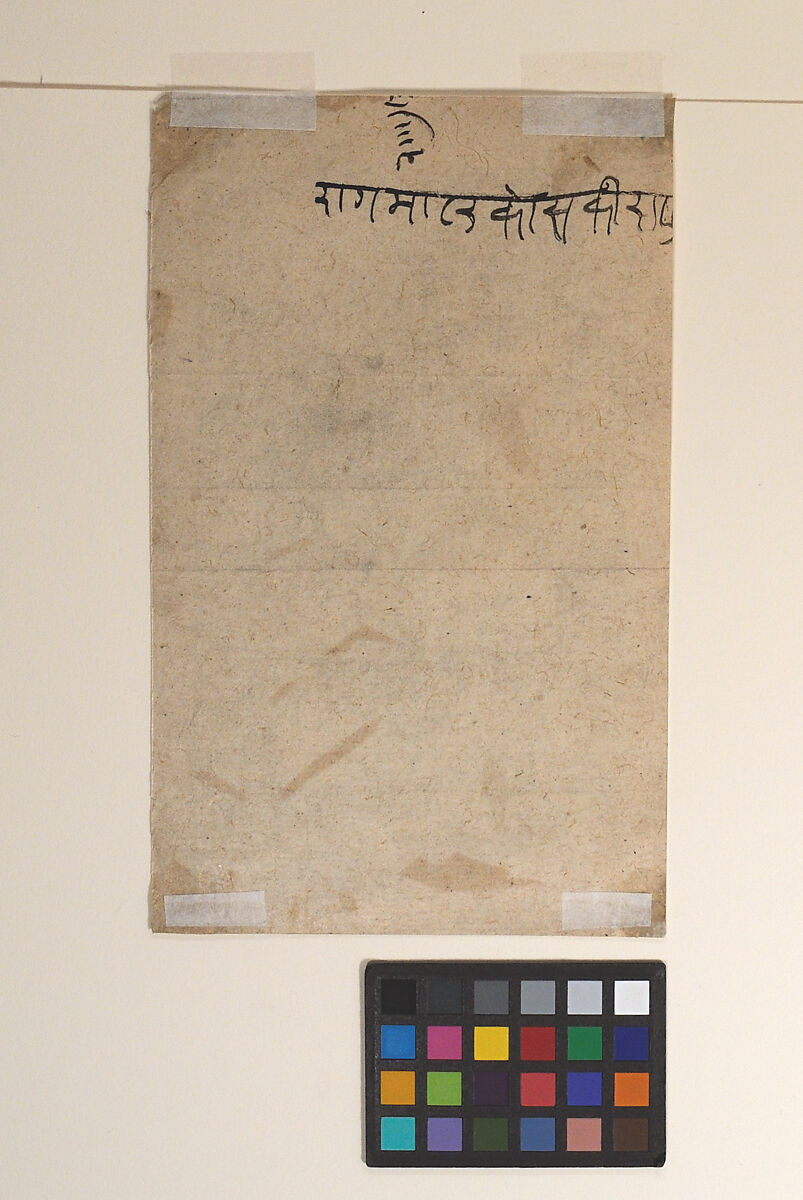 रागमालकोसकीरा